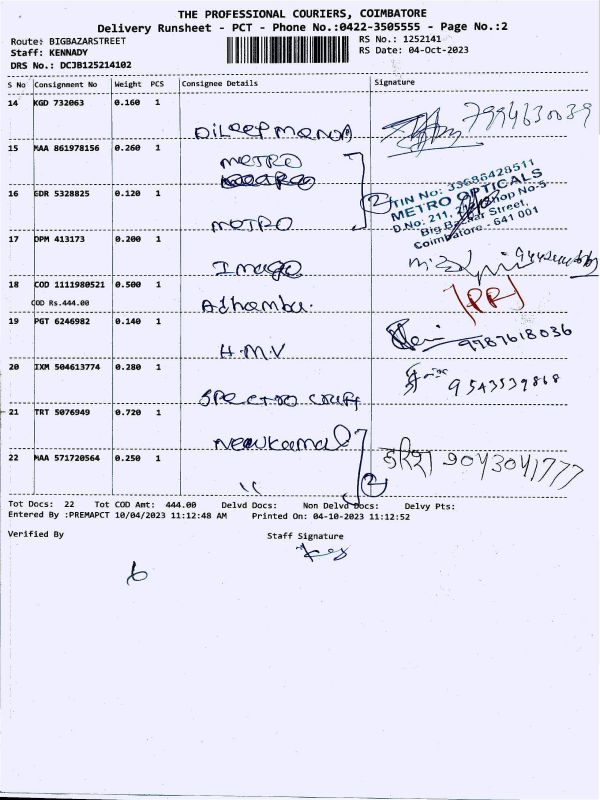 THE PROFESSIONAL COURIERS, COIMBATORE
Delivery Runsheet - PCT - Phone No.:0422-3505555 - Page No.:2
Route: BIGBAZARSTREET
RS No.: 1252141
Staff: KENNADY
RS Date: 04-Oct-2023
DRS No.: DCJB125214102
S No Consignment No Weight PCS Consignee Details Signature
14 KGD 732063 0.160 1
DiLeep manoA 7994630039
15 MAA 861978156 0.260 1
METRO
16 EDR 5328825 0.120 1
METRO
2
TIN No: 33686428511
METRO OPTICALS
D.No: 211, Shop No:5
Big Bazaar Street,
Coimbatore - 641 001
17 DPM 413173 0.200 1
Image
18 COD 1111980521 0.500 1
COD Rs.444.00
Adhamba.
19 PGT 6246982 0.140 1
H.M.V 9987618036
20 IXM 504613774 0.280 1
9543539868
21 TRT 5076949 0.720 1
Newkamal
22 MAA 571720564 0.250 1
" 2
9043041777
Tot Docs: 22 Tot COD Amt: 444.00 Delvd Docs: Non Delvd Docs: Delvy Pts:
Entered By :PREMAPCT 10/04/2023 11:12:48 AM Printed On: 04-10-2023 11:12:52
Verified By Staff Signature